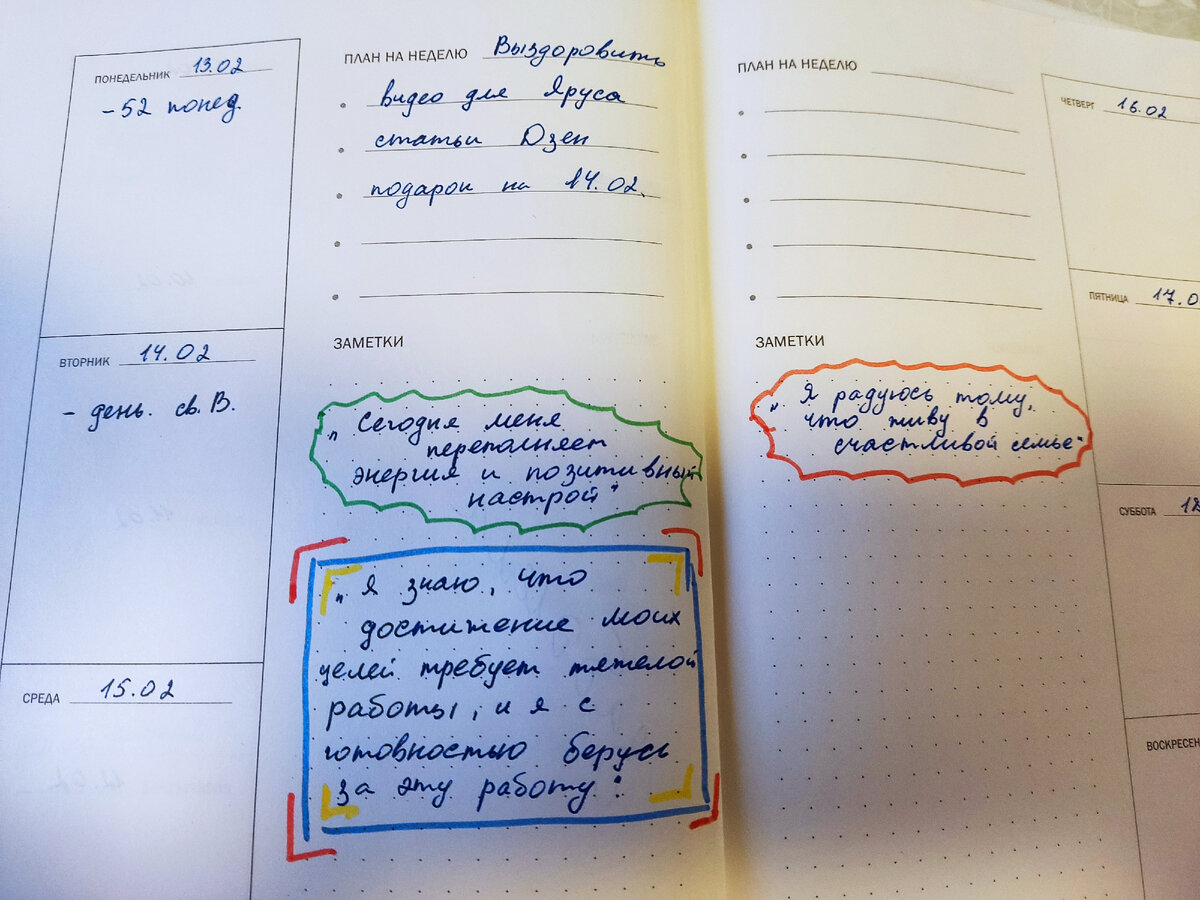 ПОНЕДЕЛЬНИК 13.02
- 52 понед.
ВТОРНИК 14.02
- день. св. В.
СРЕДА 15.02
ПЛАН НА НЕДЕЛЮ Выздоровить
видео для Яруса
статьи Дзен
подарок на 14.02.
ЗАМЕТКИ
„Сегодня меня
переполняет
энергия и позитивный
настрой"
„Я знаю, что
достижение моих
целей требует тяжелой
работы, и я с
готовностью берусь
за эту работу"
ПЛАН НА НЕДЕЛЮ
ЗАМЕТКИ
„Я радуюсь тому,
что живу в
счастливой семье"
ЧЕТВЕРГ 16.02
ПЯТНИЦА 17.0
СУББОТА 18
ВОСКРЕСЕН